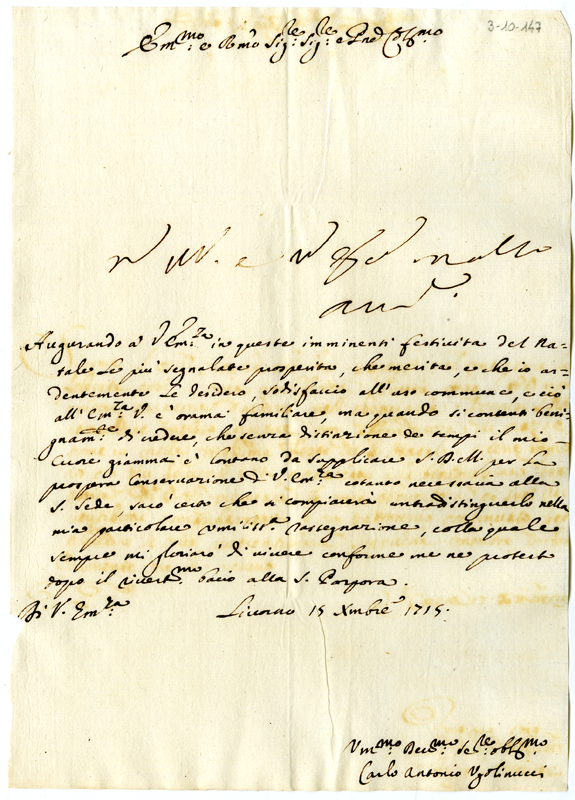 3-10-147
Em.mo e R.mo Sig.re Sig.re e Pne Col.mo
Augurando à V. Em.za in queste imminenti festivita del Na=
tale Le più segnalate prosperita, che merita, e che io ar=
dentemente Le desidero, sodisfaccio all'uso commune, e ciò
all'Em.za V. è oramai familiare, ma quando si contenti beni=
gnam.te di vedere, che senza distinzione de tempi il mio
Cuore giammai è lontano da supplicare S. D. M. per La
prospera Conservazione di V. Em.za cotanto necessaria alla
S. Sede, sarò certo che si compiacerà contradistinguerlo nella
mia particolare umiliss.a rassegnazione, colla quale
sempre mi gloriarò di vivere conforme me ne protesto
dopo il rivert.mo bacio alla S. Porpora.
Di V. Em.za Livorno 15 Xmbre 1715.
Um.mo Dev.mo Se.re obl.mo
Carlo Antonio Ugolinucci